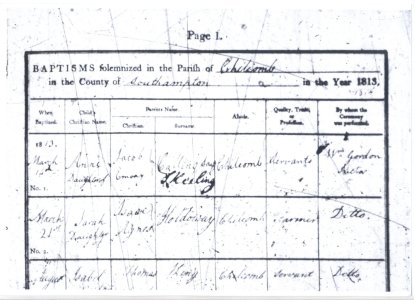 Page 1.
BAPTISMS solemnized in the Parish of Chilcomb
in the County of Southampton in the Year 1813.
When Baptized. Child's Christian Name. Parents Name. Abode. Quality, Trade, or Profession. By whom the Ceremony was performed.
Christian. Surname.
1813.
March Anne Jacob Chilcomb Servants Wm Gordon
Daughter of Keeling
No. 1.
March Sarah Isaac Holdoway Chilcomb Farmer Ditto
21st Daughter
No. 2.
August Thomas King Chilcomb Servant Ditto